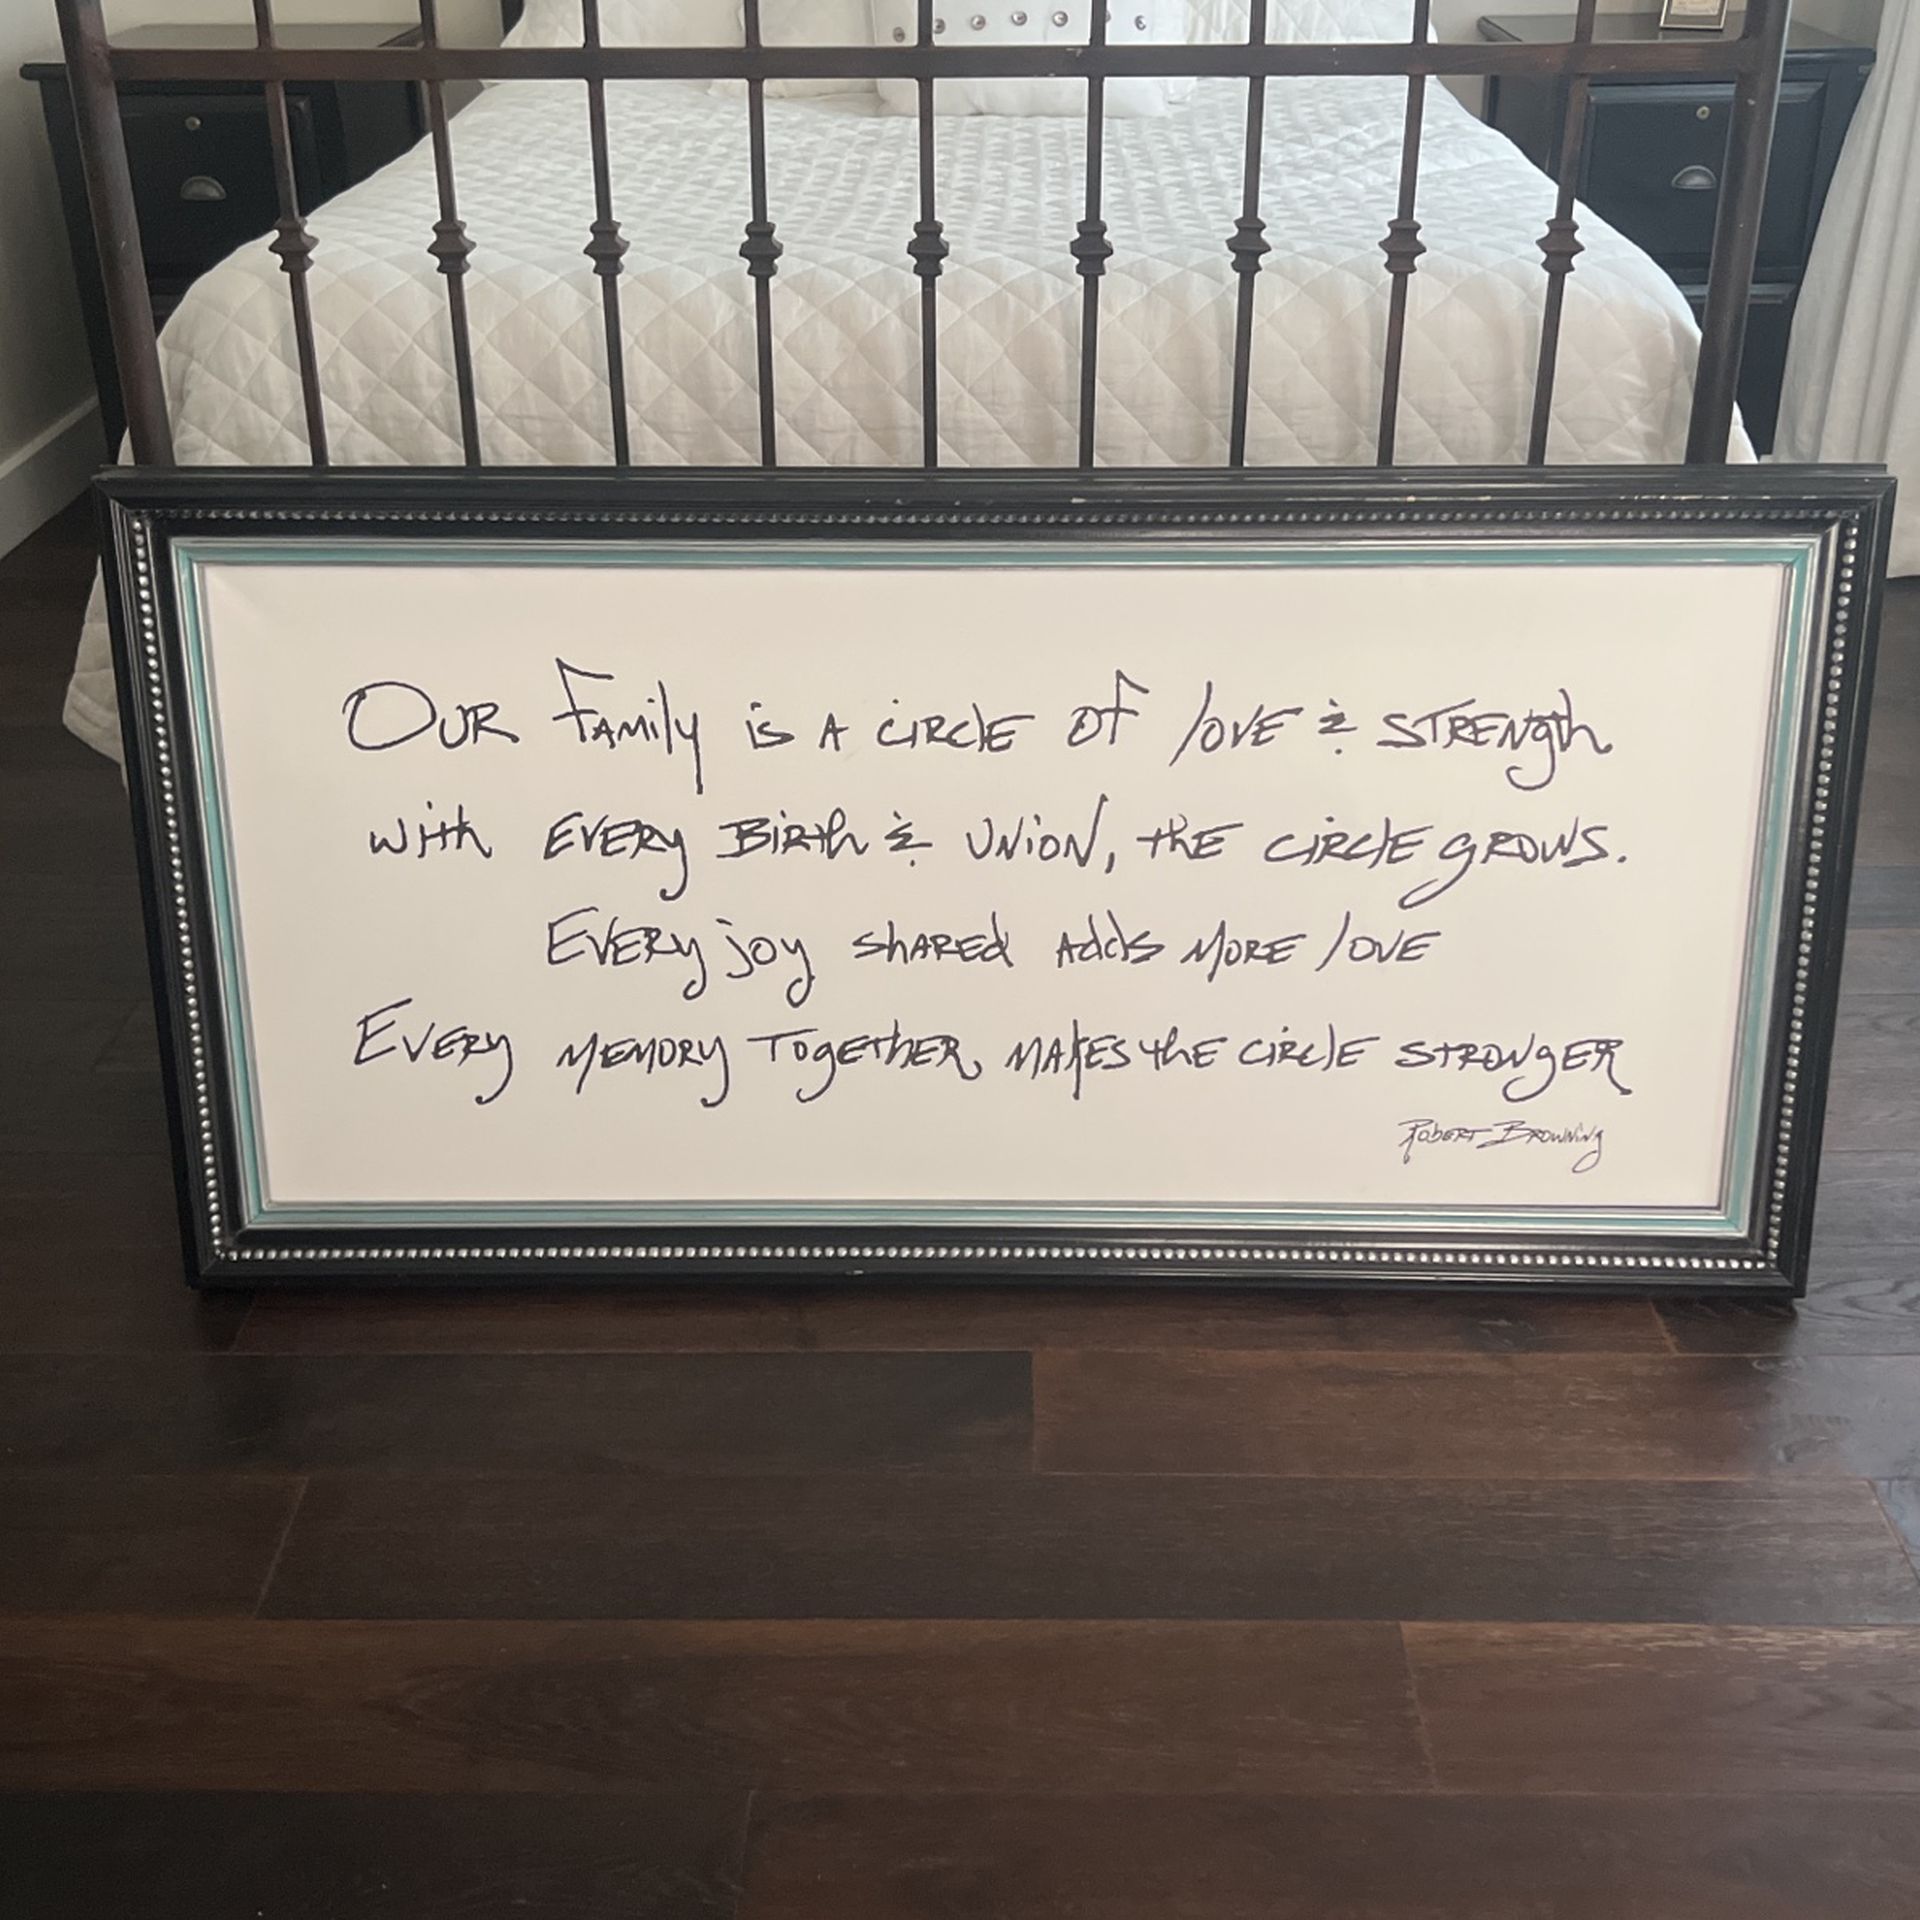 Our Family is a circle of love & strength
with every Birth & union, the circle grows.
Every joy shared adds more love
Every memory together makes the circle stronger
Robert Browning